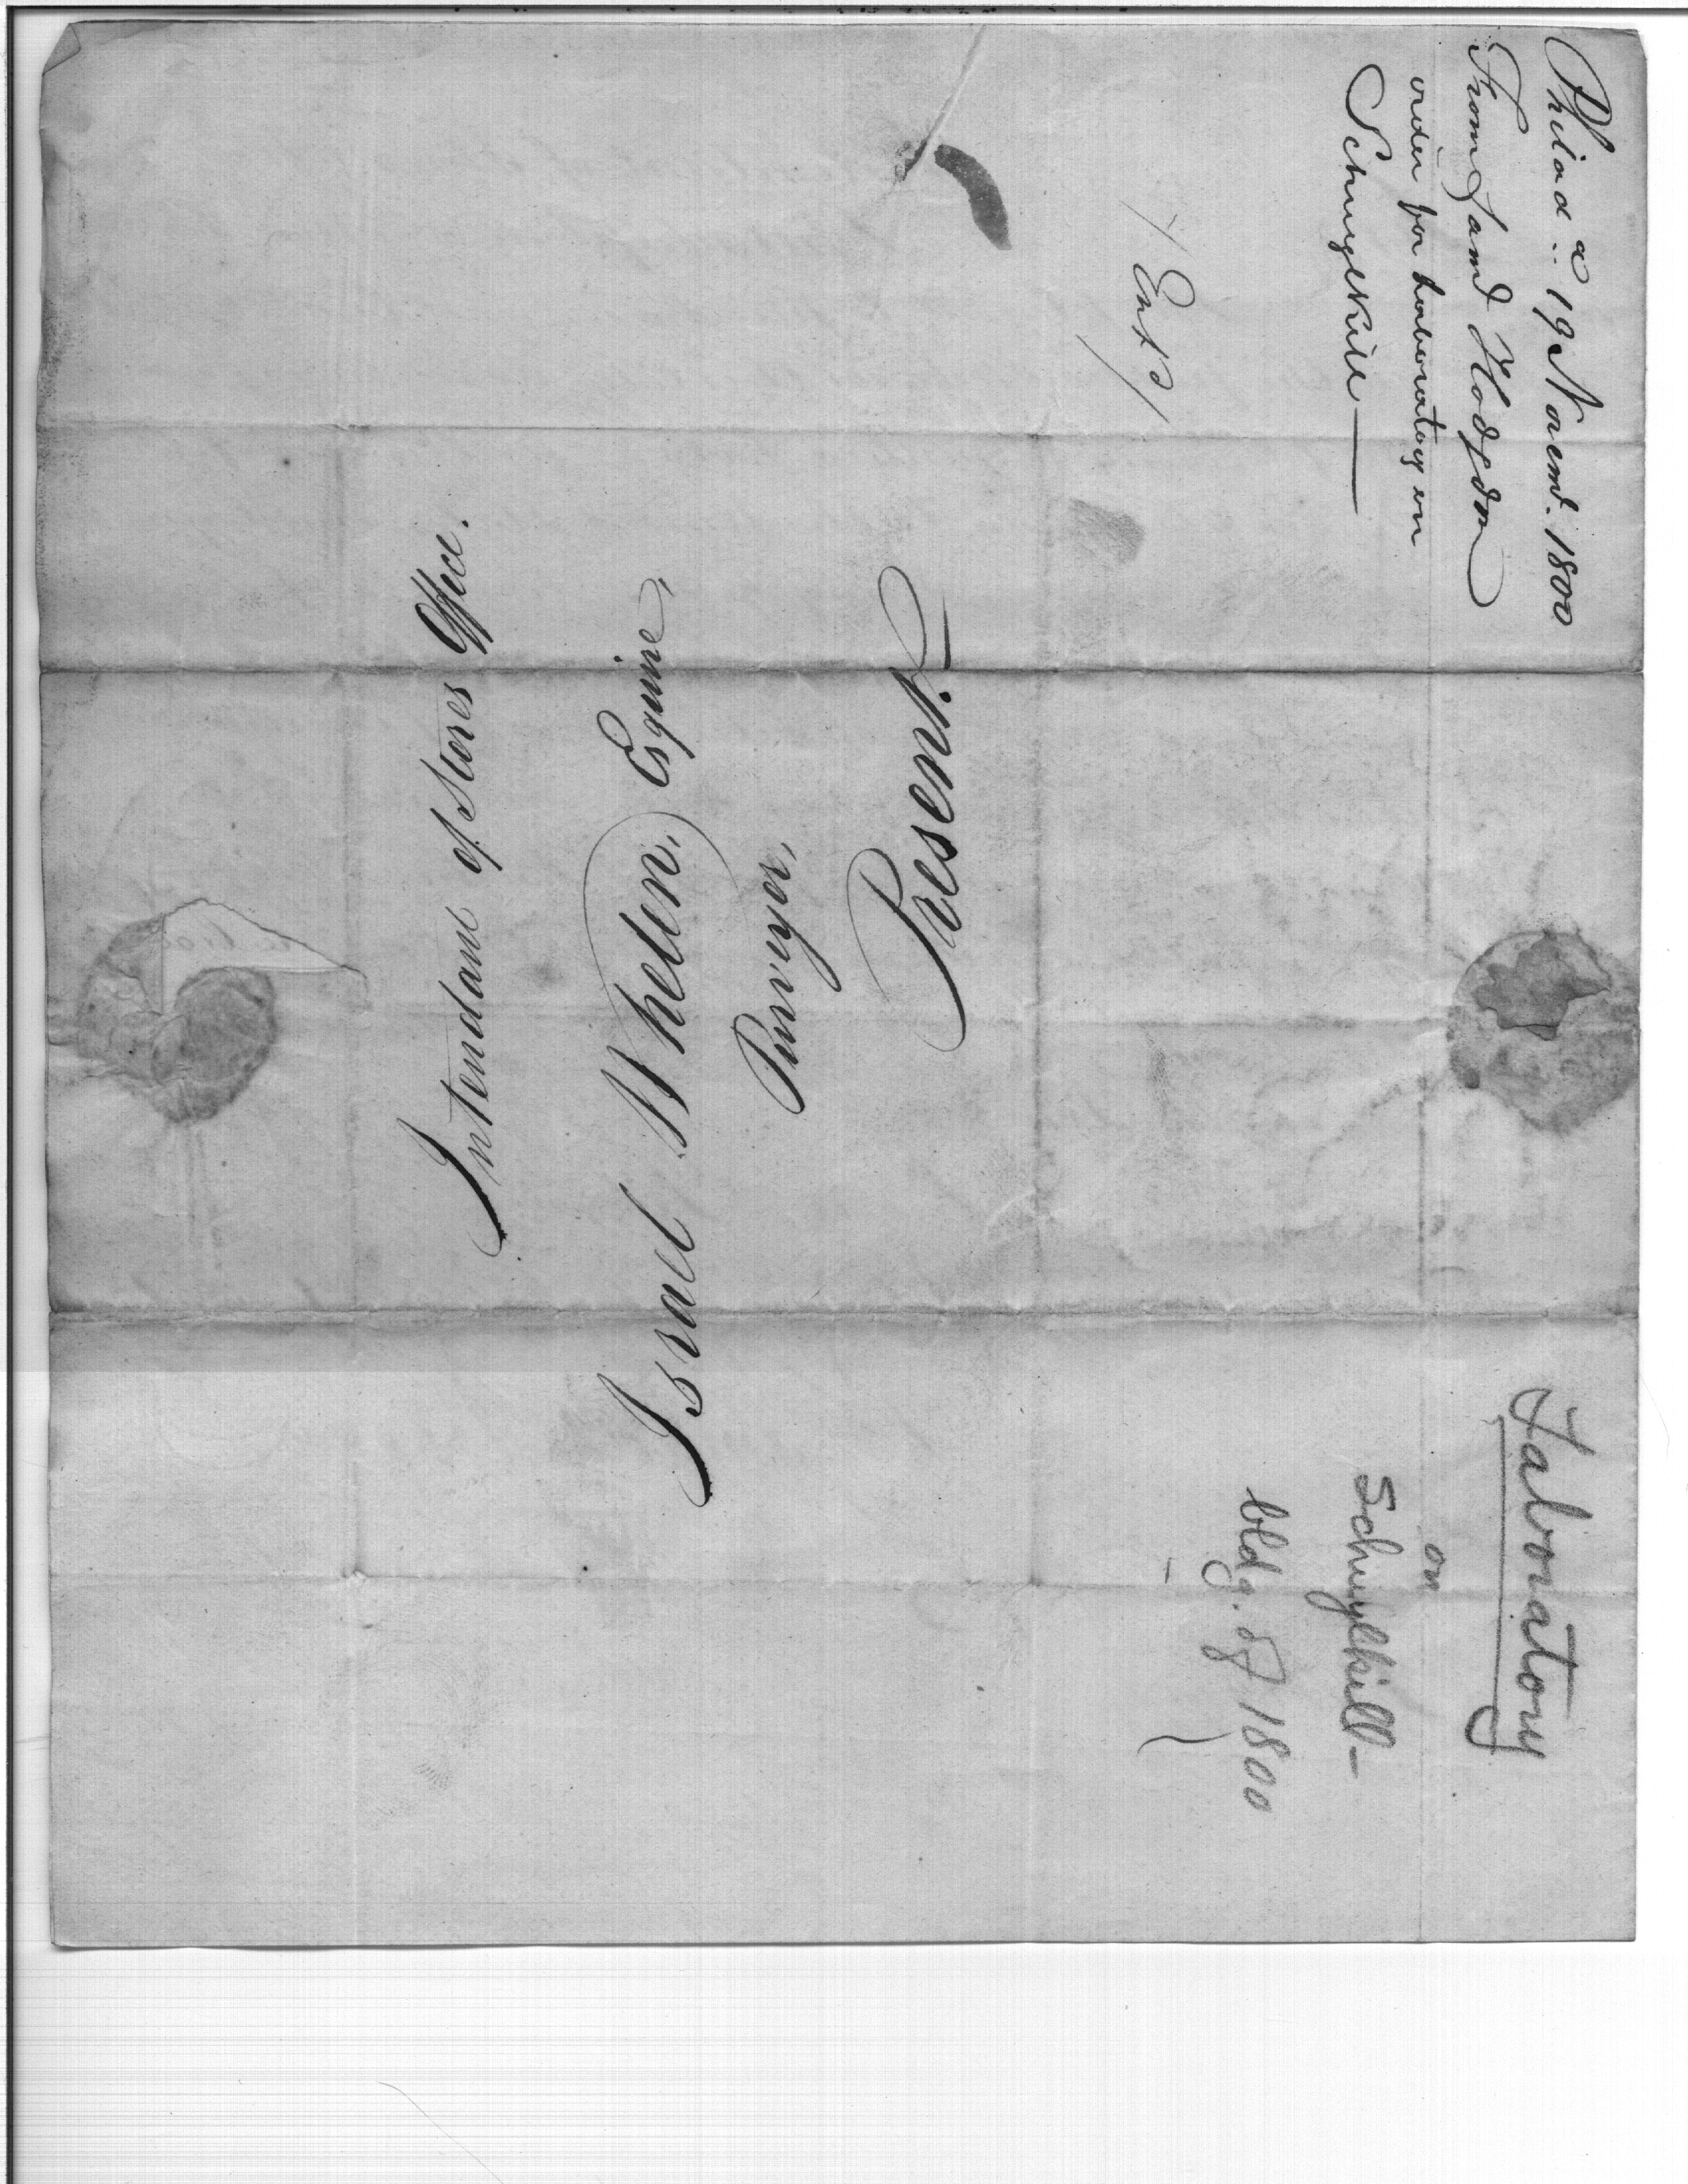 Philad.ª 19 Novemb. 1800
From Saml Hodgdon
order for Laboratory on
Schuylkill —
Ent
Intendant of Stores Office.
Israel Whelen, Esquire,
Purveyor,
Present.
Laboratory
on
Schuylkill —
bldg. of 1800